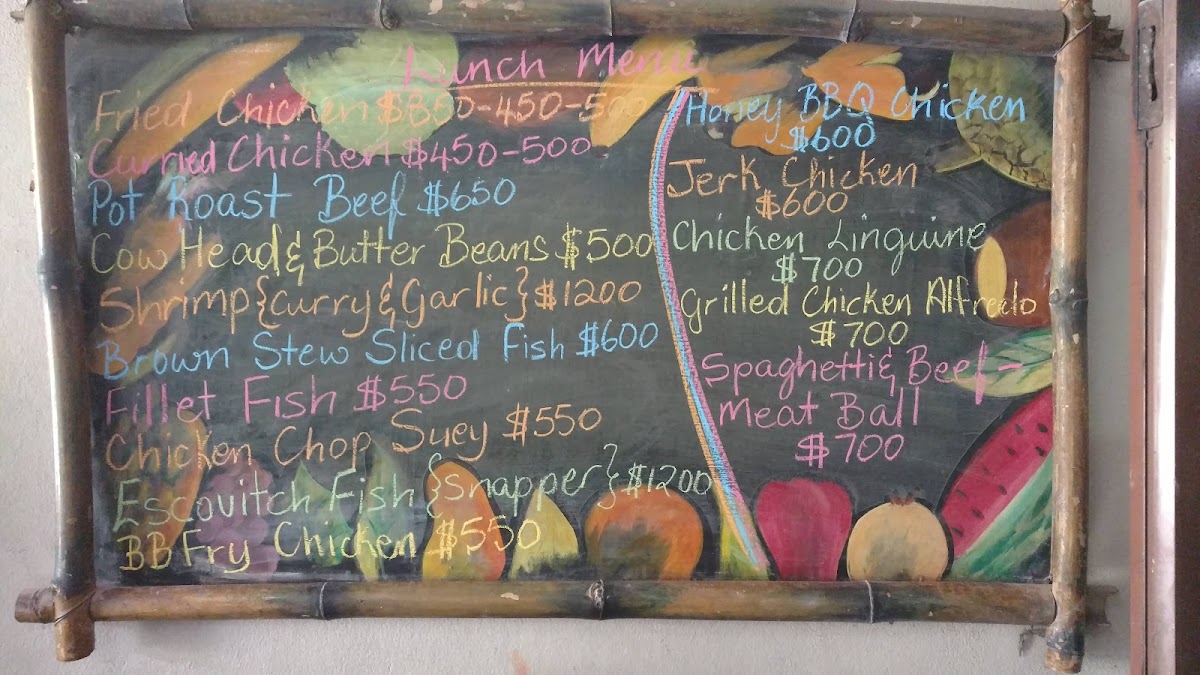 Lunch Menu
Fried Chicken $350-450-500
Curried Chicken $450-500
Pot Roast Beef $650
Cow Head & Butter Beans $500
Shrimp {Curry & Garlic} $1200
Brown Stew Sliced Fish $600
Fillet Fish $550
Chicken Chop Suey $550
Escovitch Fish {Snapper} $1200
BB Fry Chicken $550
Honey BBQ Chicken
$600
Jerk Chicken
$600
Chicken Linguine
$700
Grilled Chicken Alfredo
$700
Spaghetti & Beef -
Meat Ball
$700